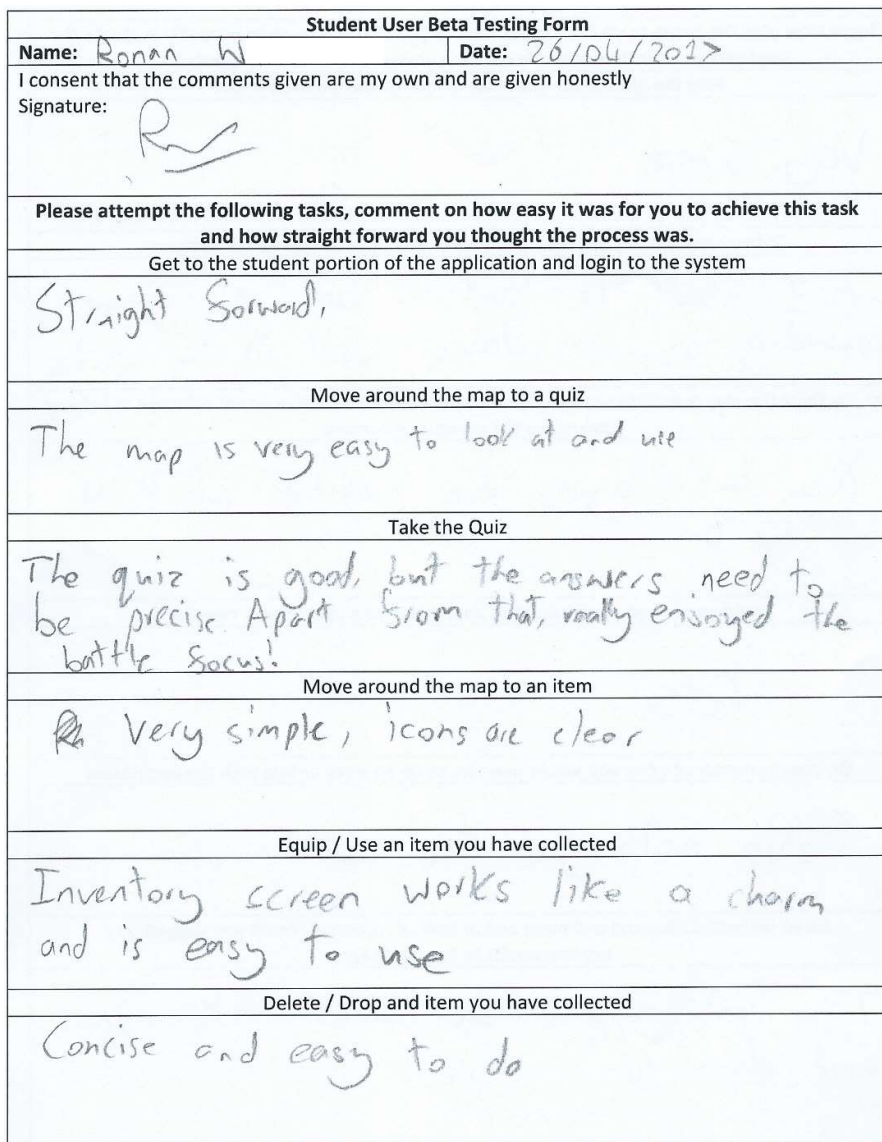 Student User Beta Testing Form
Name: Ronan W Date: 26/04/2017
I consent that the comments given are my own and are given honestly
Signature:
Please attempt the following tasks, comment on how easy it was for you to achieve this task
and how straight forward you thought the process was.
Get to the student portion of the application and login to the system
Straight forward,
Move around the map to a quiz
The map is very easy to look at and use
Take the Quiz
The quiz is good, but the answers need to
be precise. Apart from that, really enjoyed the
battle focus!
Move around the map to an item
Very simple, icons are clear
Equip / Use an item you have collected
Inventory screen works like a charm
and is easy to use
Delete / Drop and item you have collected
Concise and easy to do